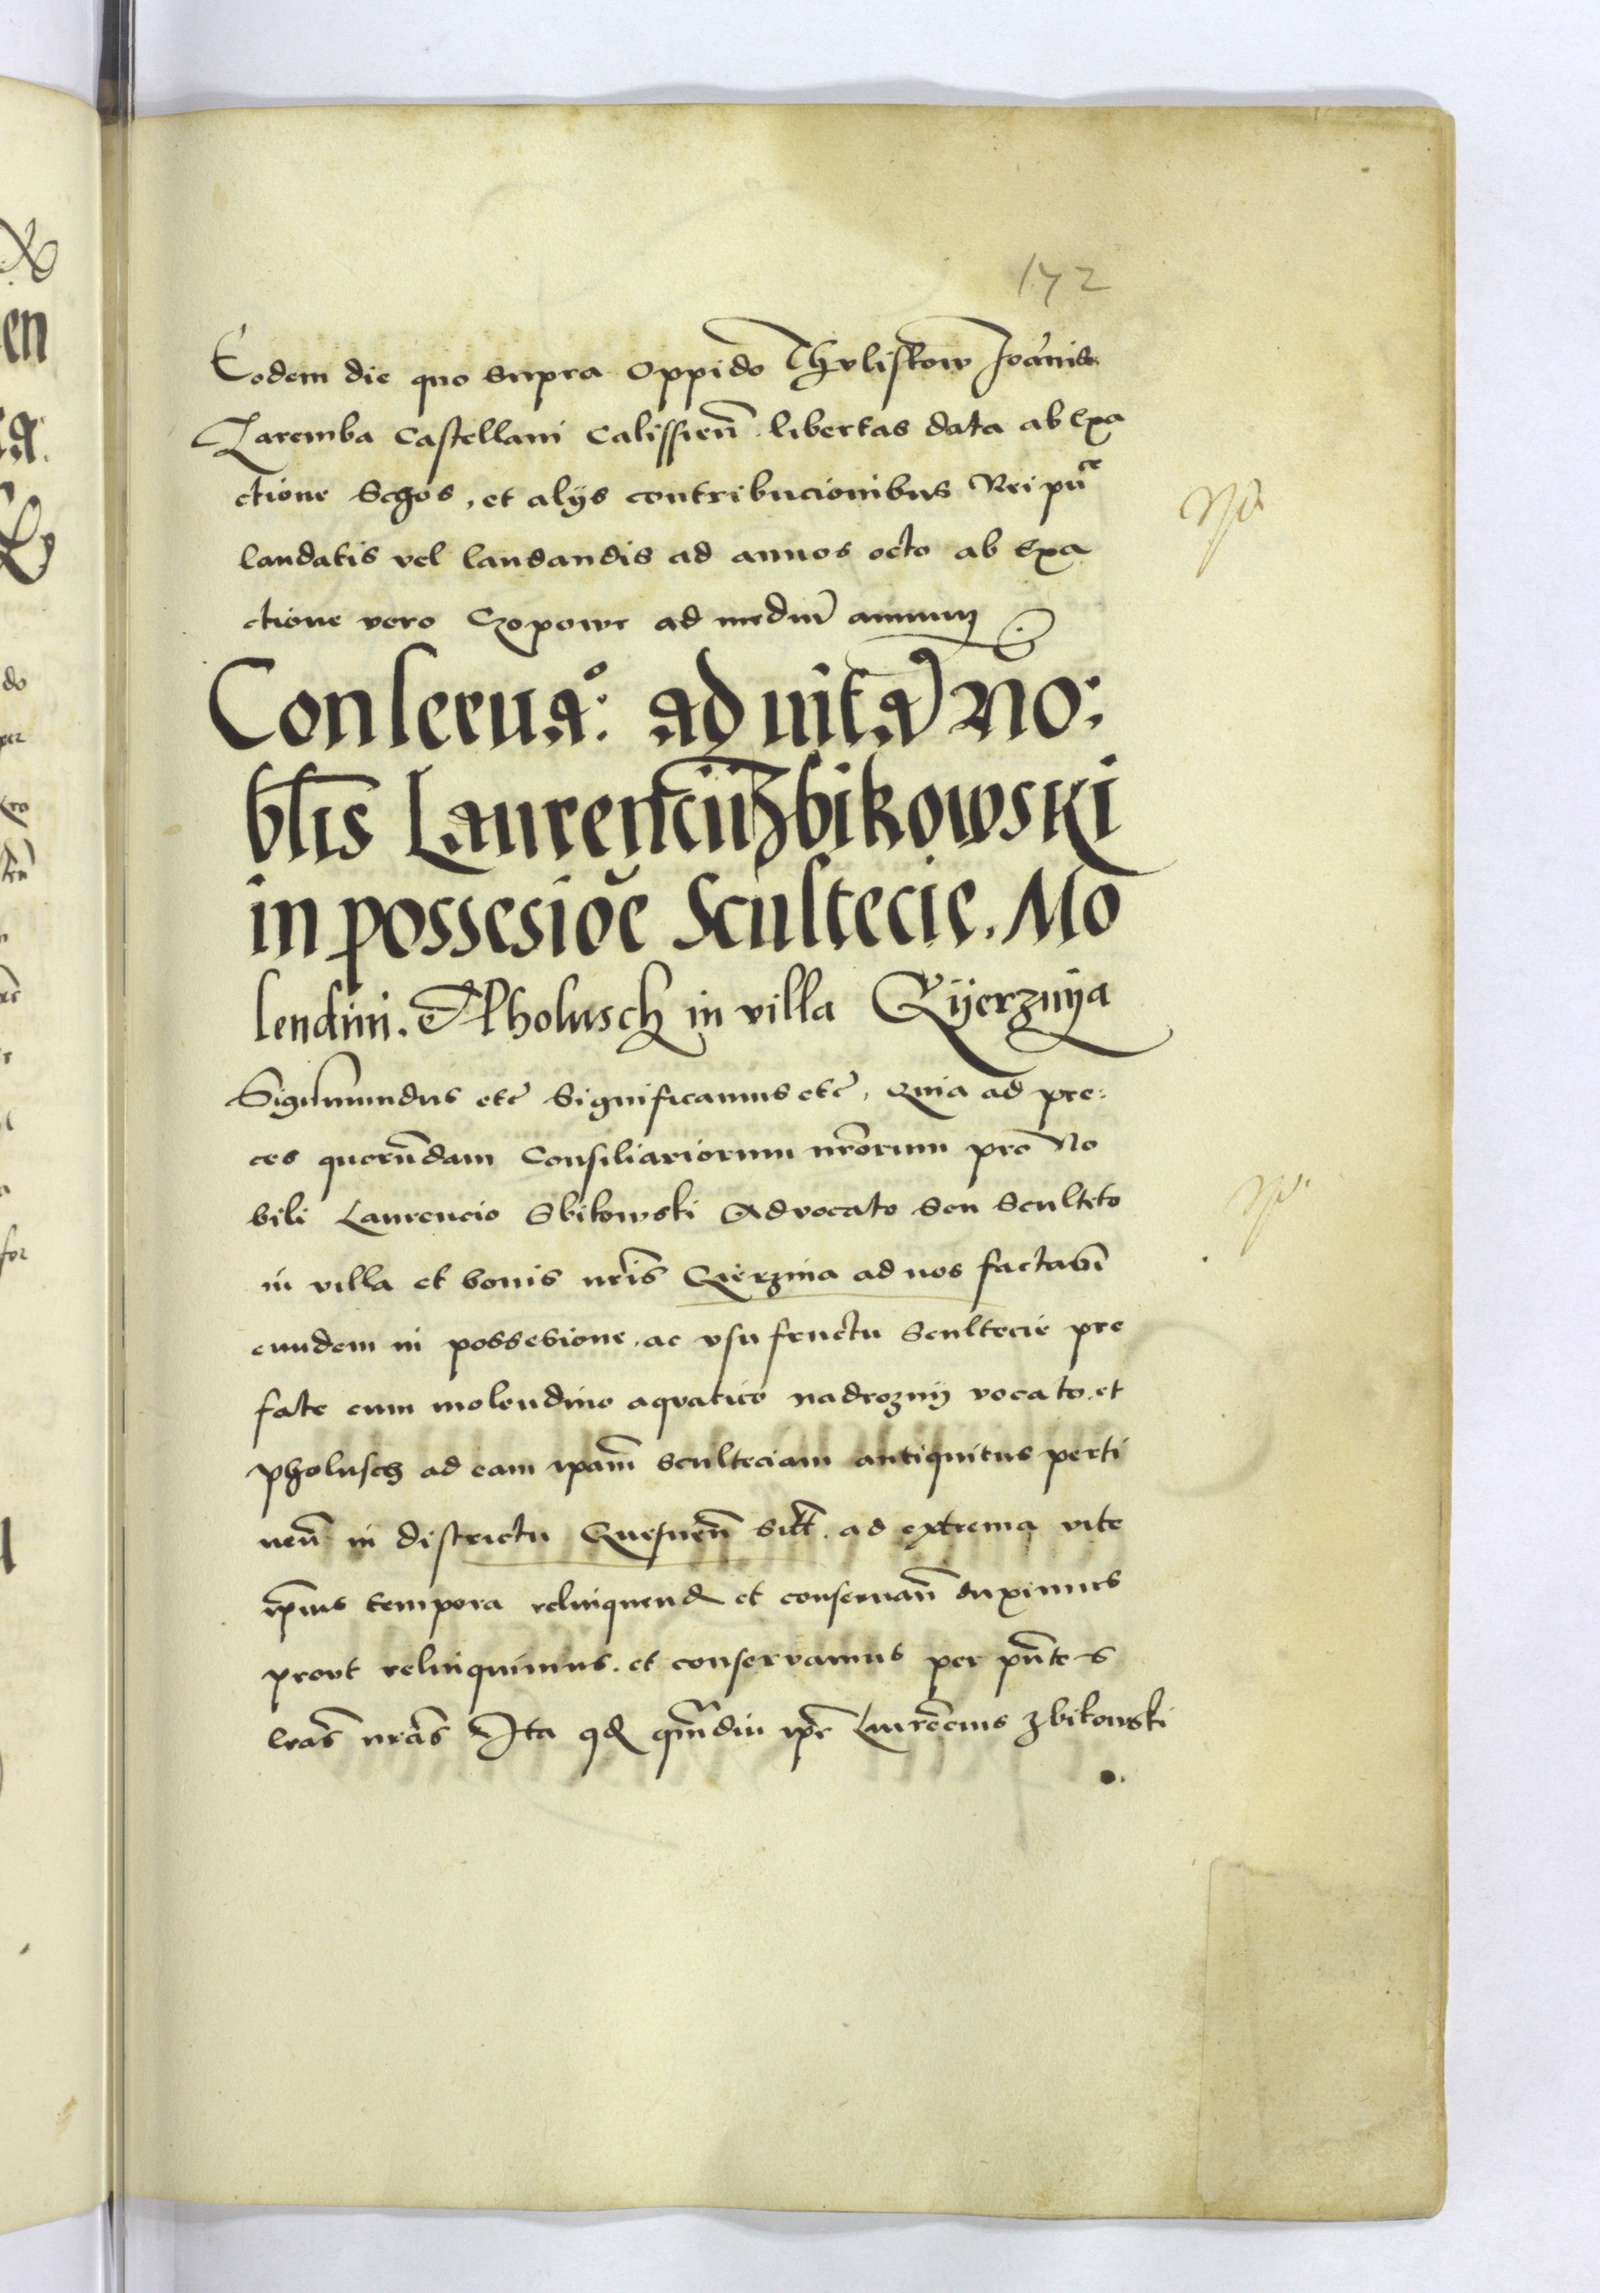 172
Eodem die quo supra oppido Thvliskow Joānis
Zaremba Castellani Calissieñ libertas data ab Exa
ctione Schos, et alijs contribucionibus Rei puce
laudatis vel laudandis ad annos octo ab Exa
ctione vero Czopowe ad mediū annum
Conserua°: ad uitā no:
blis Laurencii Zbikowski
in possesiōe Scultecie. Mo
lendini. et Pholusch in villa Qyerznya
Sigismundus etc Significamus etc, Quia ad pre:
ces quorūdam Consiliariorum nrorum pro No
bili Laurencio Sbikowski Advocato seu Sculteto
in villa et bonis nris Qierznia ad nos factas
eundem in possesione ac vsufructu Scultecie pre
fate cum molendino aqvatico nadrozny vocato et
pholusch ad eam ipam sculteciam antiquitus perti
neñ in districtu Gnesneñ sit. ad extrema vite
ipius tempora relinquend et conseruañ duximus
provt relinquimus et conservamus per pñtes
lras nras Ita qd qmdiu ipe Laurēcius Zbikowski